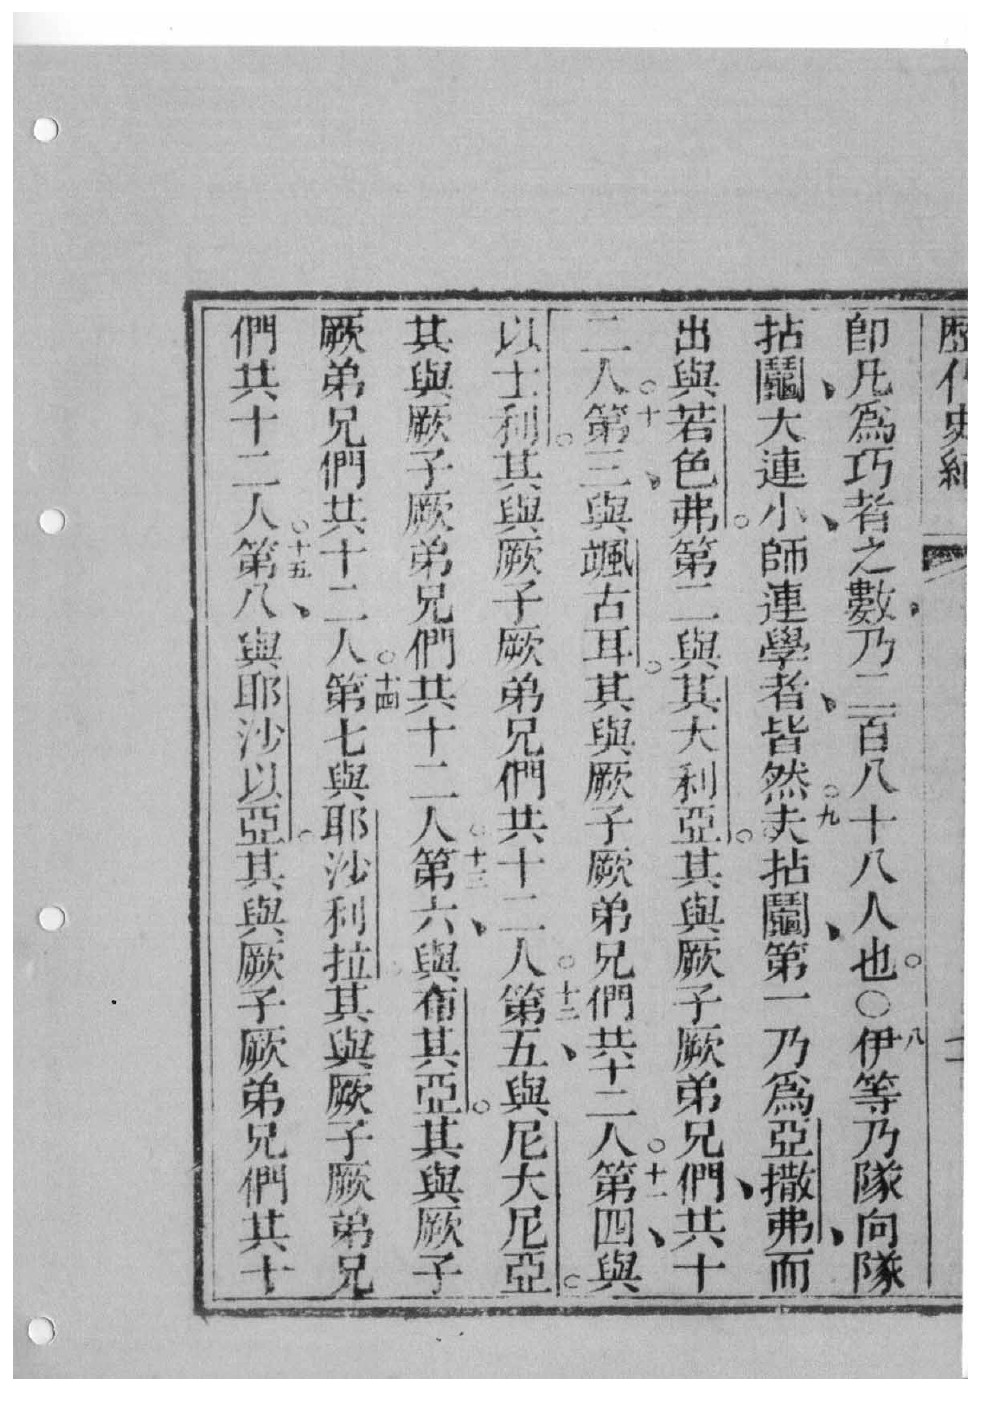 歷代史紀
即凡爲巧者之數、乃二百八十八人也。〇八伊等乃隊向隊
拈鬮、大連小、師連學者、皆然。九夫拈鬮、第一乃爲亞撒弗、而
出與若色弗。第二與其大利亞。其與厥子厥弟兄們、共十
二人。十第三、與颯古耳。其與厥子厥弟兄們共十二人。十一第四、與
以士利。其與厥子厥弟兄們共十二人。十二第五、與尼大尼亞。
其與厥子厥弟兄們共十二人。十三第六、與布其亞。其與厥子
厥弟兄們共十二人。十四第七與耶沙利拉。其與厥子厥弟兄
們共十二人。十五第八、與耶沙以亞。其與厥子厥弟兄們共十